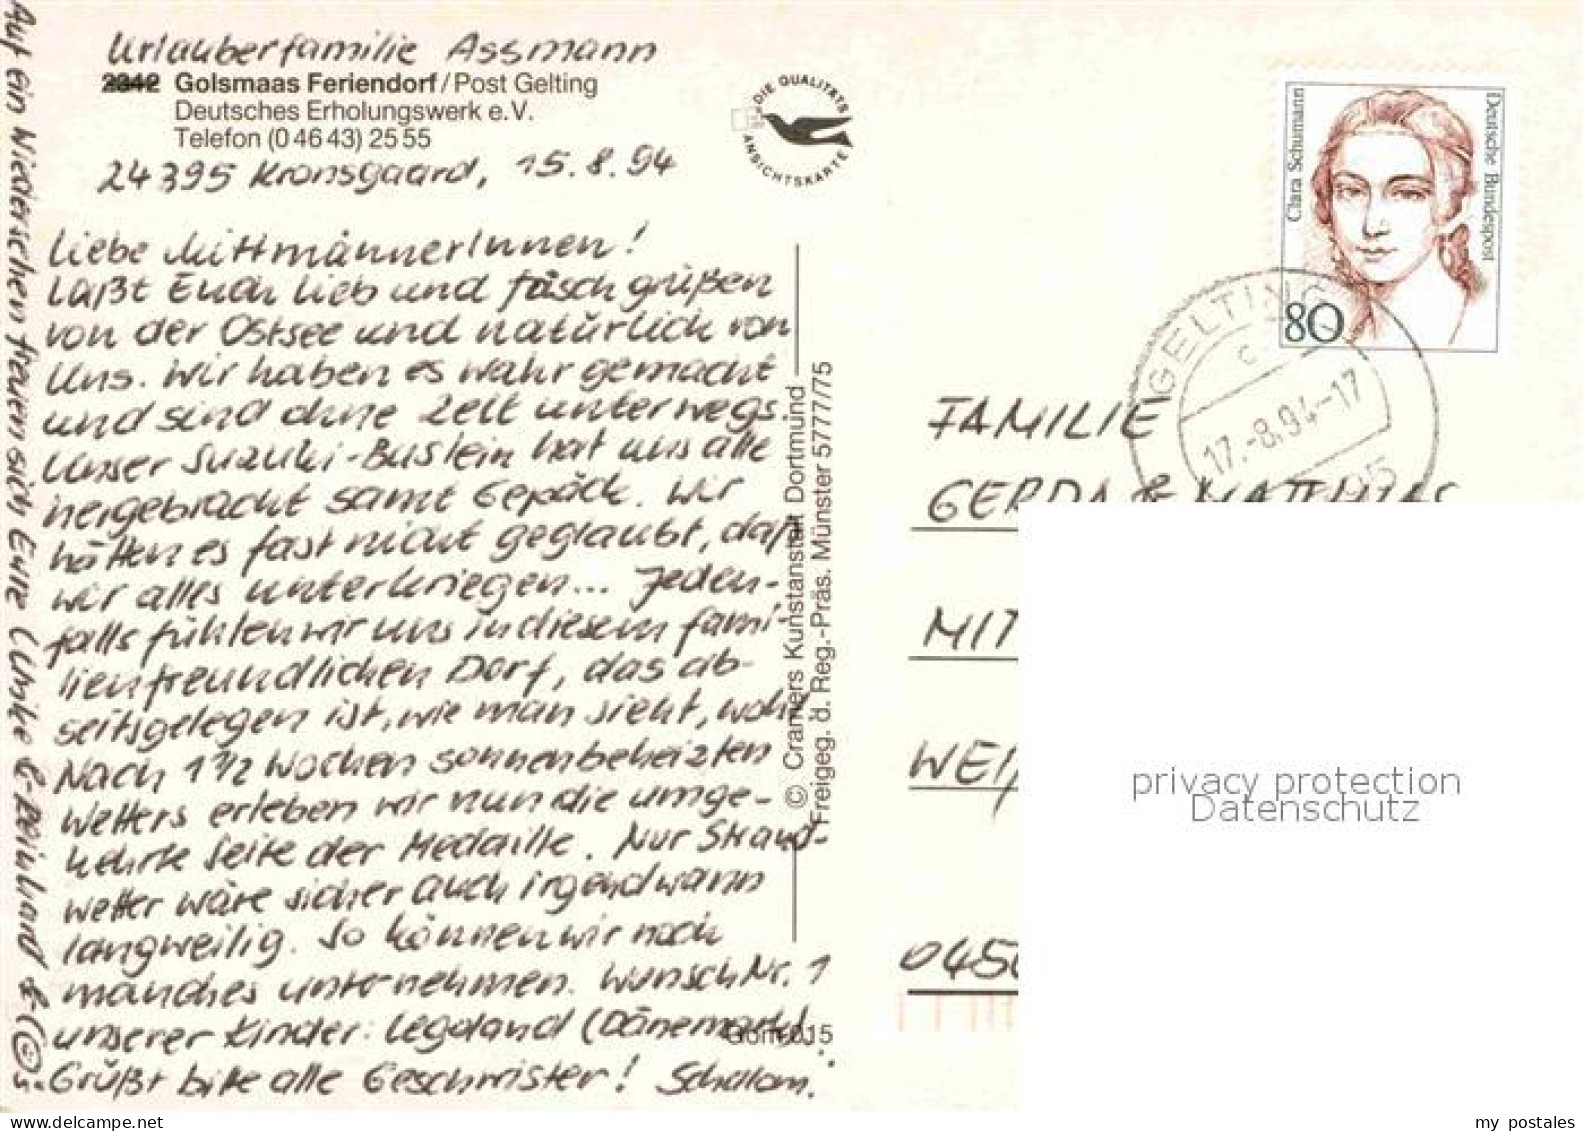 Urlauberfamilie Assmann
2342 Golsmaas Feriendorf/Post Gelting
Deutsches Erholungswerk e.V.
Telefon (0 46 43) 25 55
24395 Kronsgaard, 15.8.94
Liebe MittmännerInnen!
Laßt Euch lieb und fösch grüßen
von der Ostsee und natürlich von
Uns. Wir haben es wahr gemacht
und sind ohne Zelt unterwegs.
Unser Suzuki-Buslein hat uns alle
hergebracht samt Gepäck. Wir
hätten es fast nicht geglaubt, daß
wir alles unterkriegen... Jeden-
falls fühlen wir uns in diesem fami-
lienfreundlichen Dorf, das ab-
seitsgelegen ist, wie man sieht, wohl
Nach 1 1/2 Wochen sonnenbeheizten
Wetters erleben wir nun die umge-
kehrte Seite der Medaille. Nur Strand-
wetter wäre sicher auch irgendwann
langweilig. So können wir noch
manches unternehmen. Wunsch Nr. 1
unserer Kinder: Legoland (Dänemark).
Grüßt bitte alle Geschwister! Schalom!
Auf ein Wiedersehen freuen sich Eure Ulrike & Reinhard &
DIE QUALITÄTS
ANSICHTSKARTE
© Cramers Kunstanstalt Dortmund
Freigeg. d. Reg.-Präs. Münster 5777/75
Gom 015
Clara Schumann
Deutsche Bundespost
80
GELTING
17.-8.94-17
FAMILIE
GERDA & MATTHIAS
MIT
WEI
045
privacy protection
Datenschutz
my postales
www.delcampe.net